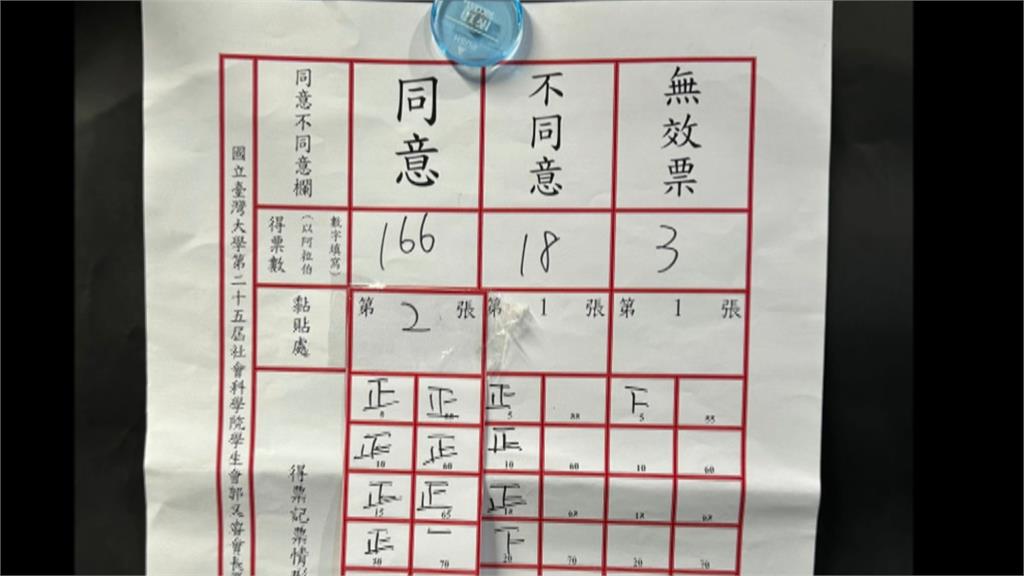 國立臺灣大學第二十五屆社會科學院學生會郭
同意不同意欄
同意
不同意
無效票
得票數
（以阿拉伯
數字填寫）
166
18
3
黏貼處
第 2 張
第 1 張
第 1 張
得票記票情形
正 正 正 下
5 5
正 正 正
10 60 10 60 10 60
正 正 正
15 65
正 一 下
70 20 70 20 70